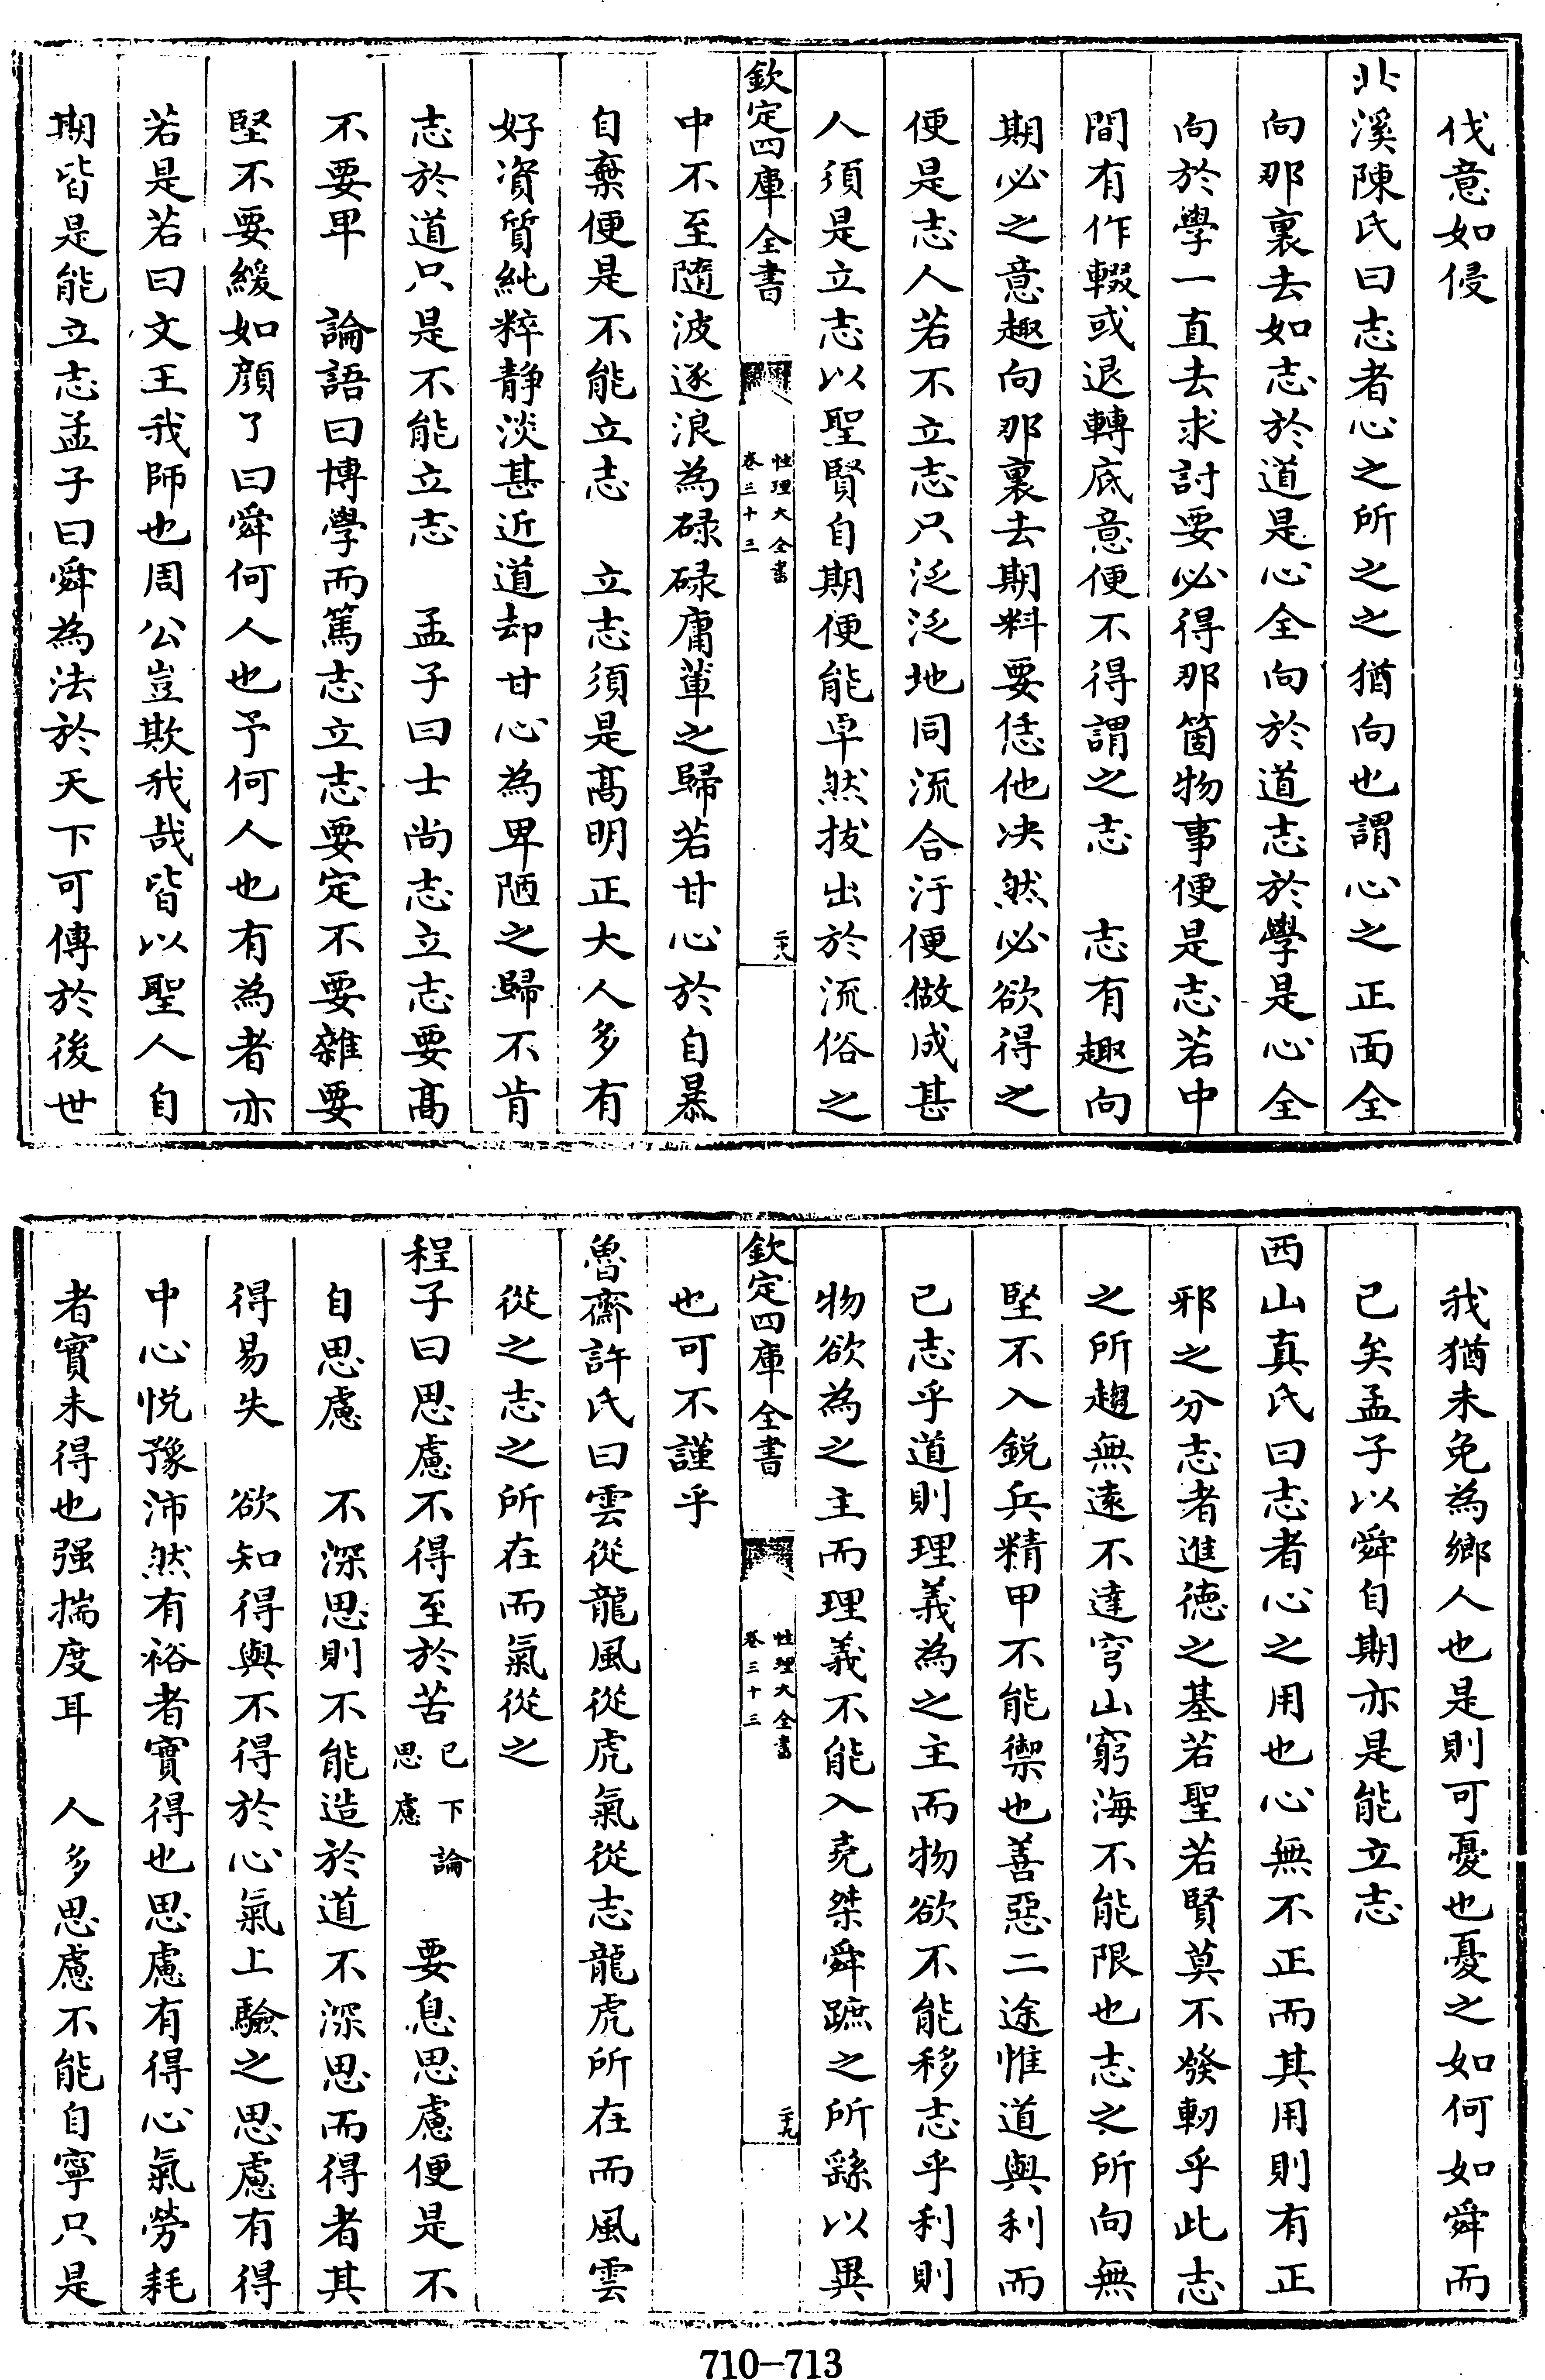 伐意如侵
北溪陳氏曰志者心之所之之猶向也謂心之正面全
向那裏去如志於道是心全向於道志於學是心全
向於學一直去求討要必得那箇物事便是志若中
間有作輟或退轉底意便不得謂之志　志有趣向
期必之意趣向那裏去期料要恁他决然必欲得之
便是志人若不立志只泛泛地同流合汙便做成甚
人須是立志以聖賢自期便能卓然拔出於流俗之
欽定四庫全書
性理大全書
卷三十三
二十八
中不至隨波逐浪為碌碌庸軰之歸若甘心於自暴
自棄便是不能立志　立志須是髙明正大人多有
好資質純粹静淡甚近道却甘心為卑陋之歸不肯
志於道只是不能立志　孟子曰士尚志立志要髙
不要卑　論語曰博學而篤志立志要定不要雜要
堅不要緩如顔子曰舜何人也予何人也有為者亦
若是若曰文王我師也周公豈欺我哉皆以聖人自
期皆是能立志孟子曰舜為法於天下可傳於後世
我猶未免為鄉人也是則可憂也憂之如何如舜而
已矣孟子以舜自期亦是能立志
西山真氏曰志者心之用也心無不正而其用則有正
邪之分志者進徳之基若聖若賢莫不發軔乎此志
之所趨無遠不達穹山窮海不能限也志之所向無
堅不入鋭兵精甲不能禦也善惡二途惟道與利而
已志乎道則理義為之主而物欲不能移志乎利則
物欲為之主而理義不能入堯桀舜蹠之所繇以異
欽定四庫全書
性理大全書
卷三十三
二十九
也可不謹乎
魯齋許氏曰雲從龍風從虎氣從志龍虎所在而風雲
從之志之所在而氣從之
程子曰思慮不得至於苦已下論思慮　要息思慮便是不
自思慮　不深思則不能造於道不深思而得者其
得易失　欲知得與不得於心氣上驗之思慮有得
中心悦豫沛然有裕者實得也思慮有得心氣勞耗
者實未得也强揣度耳　人多思慮不能自寧只是
710-713